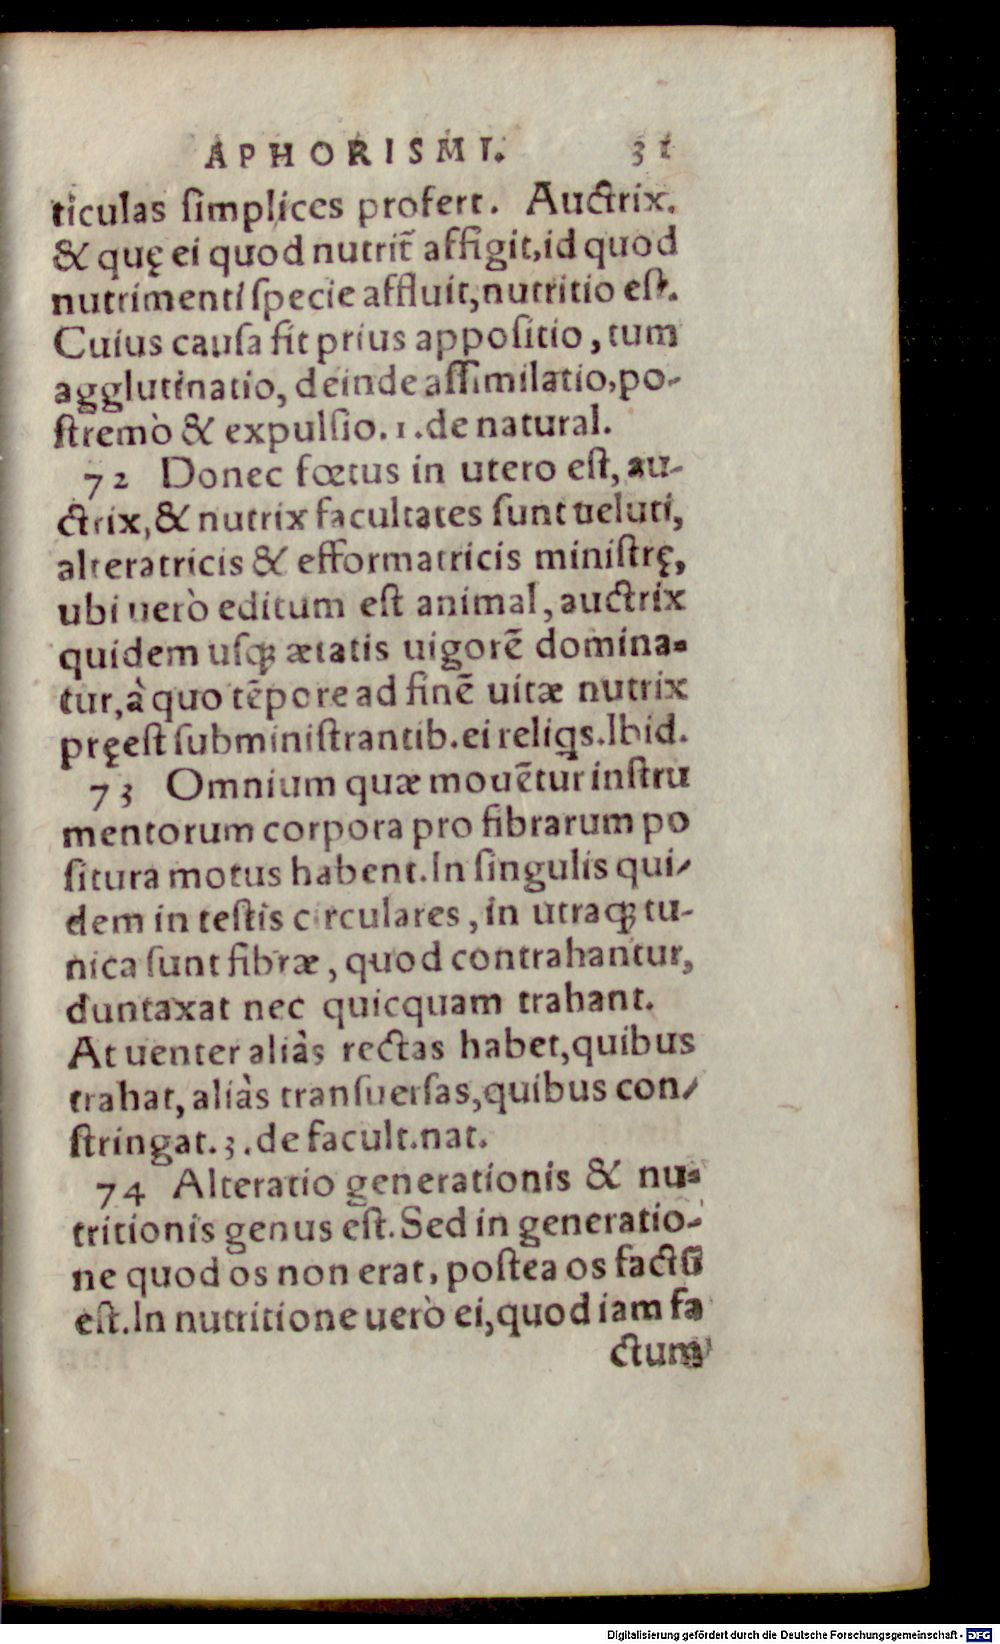 APHORISMI. 31
ticulas ſimplices profert. Auctrix.
& quę ei quod nutrit̃ affigit, id quod
nutrimenti ſpecie affluit, nutritio eſt.
Cuius cauſa fit prius appoſitio, tum
agglutinatio, deinde aſſimilatio, po-
ſtremò & expulſio. 1. de natural.
72 Donec fœtus in utero eſt, au-
ctrix, & nutrix facultates ſunt ueluti,
alteratricis & efformatricis miniſtrę,
ubi uerò editum eſt animal, auctrix
quidem uſq; ætatis uigorẽ domina-
tur, à quo tẽpore ad finẽ uitæ nutrix
pręeſt ſubminiſtrantib. ei reliqs. Ibid.
73 Omnium quæ mouẽtur inſtru
mentorum corpora pro fibrarum po
ſitura motus habent. In ſingulis qui-
dem in teſtis circulares, in utraq; tu-
nica ſunt fibræ, quod contrahantur,
duntaxat nec quicquam trahant.
At uenter aliàs rectas habet, quibus
trahat, aliàs tranſuerſas, quibus con-
ſtringat. 3. de facult. nat.
74 Alteratio generationis & nu-
tritionis genus eſt. Sed in generatio-
ne quod os non erat, poſtea os factũ
eſt. In nutritione uerò ei, quod iam fa
ctum
Digitalisierung gefördert durch die Deutsche Forschungsgemeinschaft - DFG